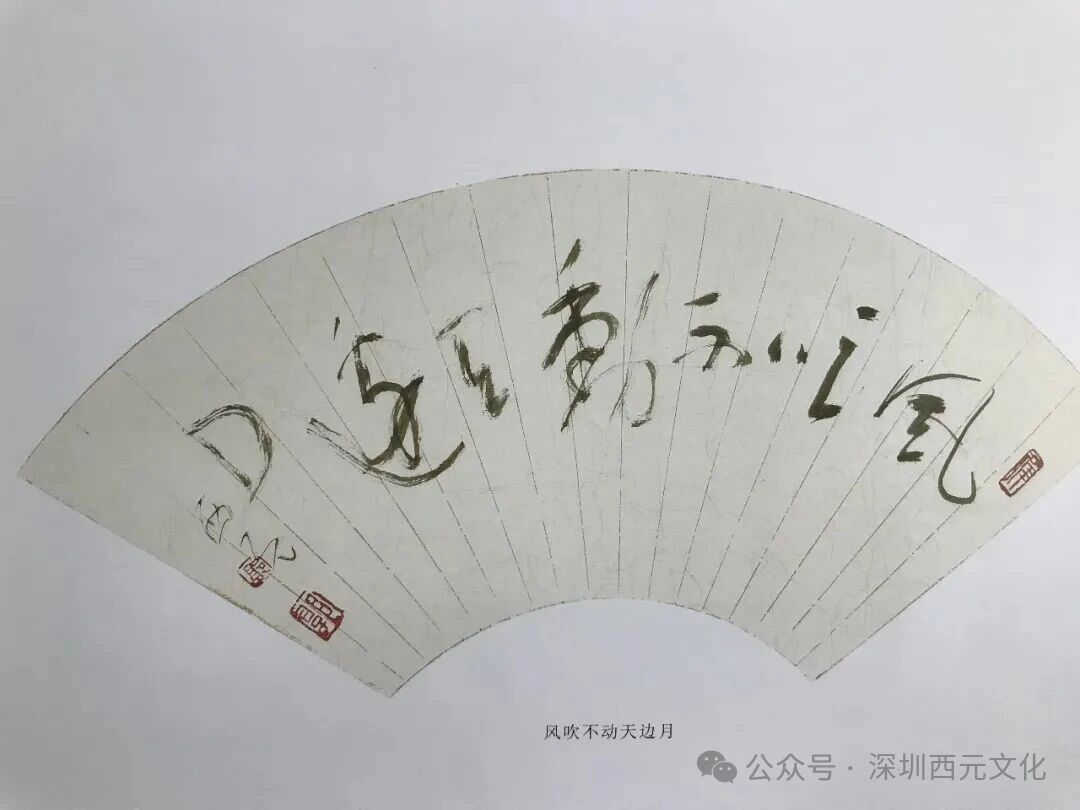 風吹不動天邊月
风吹不动天边月
公众号·深圳西元文化